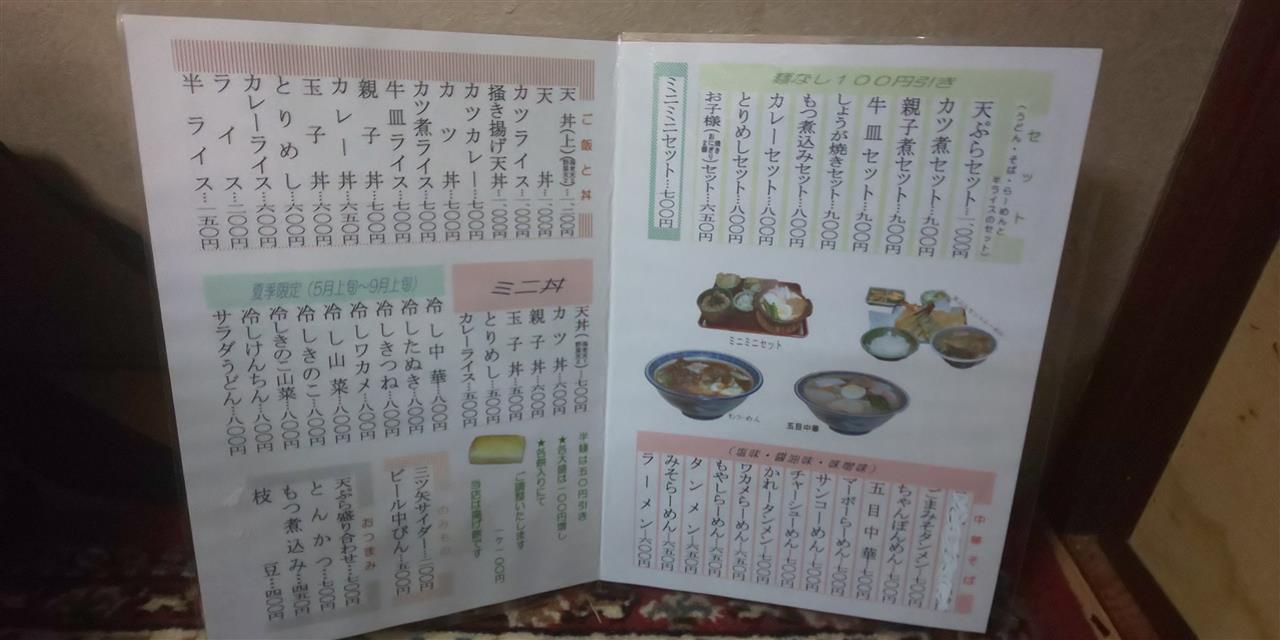 麺なし100円引き
セット
(うどん・そば・らーめんと
半ライスのセット)
天ぷらセット…一、〇〇〇円
カツ煮セット…九〇〇円
親子煮セット…九〇〇円
牛皿セット…九〇〇円
しょうが焼きセット…九〇〇円
もつ煮込みセット…八〇〇円
カレーセット…八〇〇円
とりめしセット…八〇〇円
お子様セット…六五〇円
ミニミニセット…七〇〇円
ミニミニセット
五目中華
中華そば
(塩味・醤油味・味噌味)
ごまみそタンメン…七〇〇円
ちゃんぽんめん…七〇〇円
五目中華…七〇〇円
マーボーらーめん…七〇〇円
サンコーめん…七〇〇円
チャーシューめん…七〇〇円
かれータンメン…七〇〇円
ワカメらーめん…六五〇円
もやしらーめん…六五〇円
タンメン…六五〇円
みそらーめん…六五〇円
ラーメン…六〇〇円
ご飯と丼
天丼(上)…一、二〇〇円
天丼…一、〇〇〇円
カツライス…一、〇〇〇円
掻き揚げ天丼…一、〇〇〇円
カツカレー…一、〇〇〇円
カツ丼…七〇〇円
カツ煮ライス…七〇〇円
牛皿ライス…七〇〇円
親子丼…七〇〇円
カレー丼…六五〇円
玉子丼…六〇〇円
とりめし…六〇〇円
カレーライス…六〇〇円
ライス…二〇〇円
半ライス…一五〇円
ミニ丼
天丼…七〇〇円
カツ丼…六〇〇円
親子丼…六〇〇円
玉子丼…五〇〇円
とりめし…五〇〇円
カレーライス…五〇〇円
夏季限定(5月上旬~9月上旬)
冷し中華…八〇〇円
冷したぬき…八〇〇円
冷しきつね…八〇〇円
冷しワカメ…八〇〇円
冷し山菜…八〇〇円
冷しきのこ…八〇〇円
冷しきのこ山菜…八〇〇円
冷しけんちん…八〇〇円
サラダうどん…八〇〇円
半麺は五〇円引き
★各大盛は一〇〇円増し
★各餅入りにて
ご調整いたします
一ケ一〇〇円
当店は揚げ餅です
のみもの
三ツ矢サイダー…二〇〇円
ビール中びん…五〇〇円
おつまみ
天ぷら盛り合わせ…七〇〇円
とんかつ…七〇〇円
もつ煮込み…四五〇円
枝豆…四〇〇円